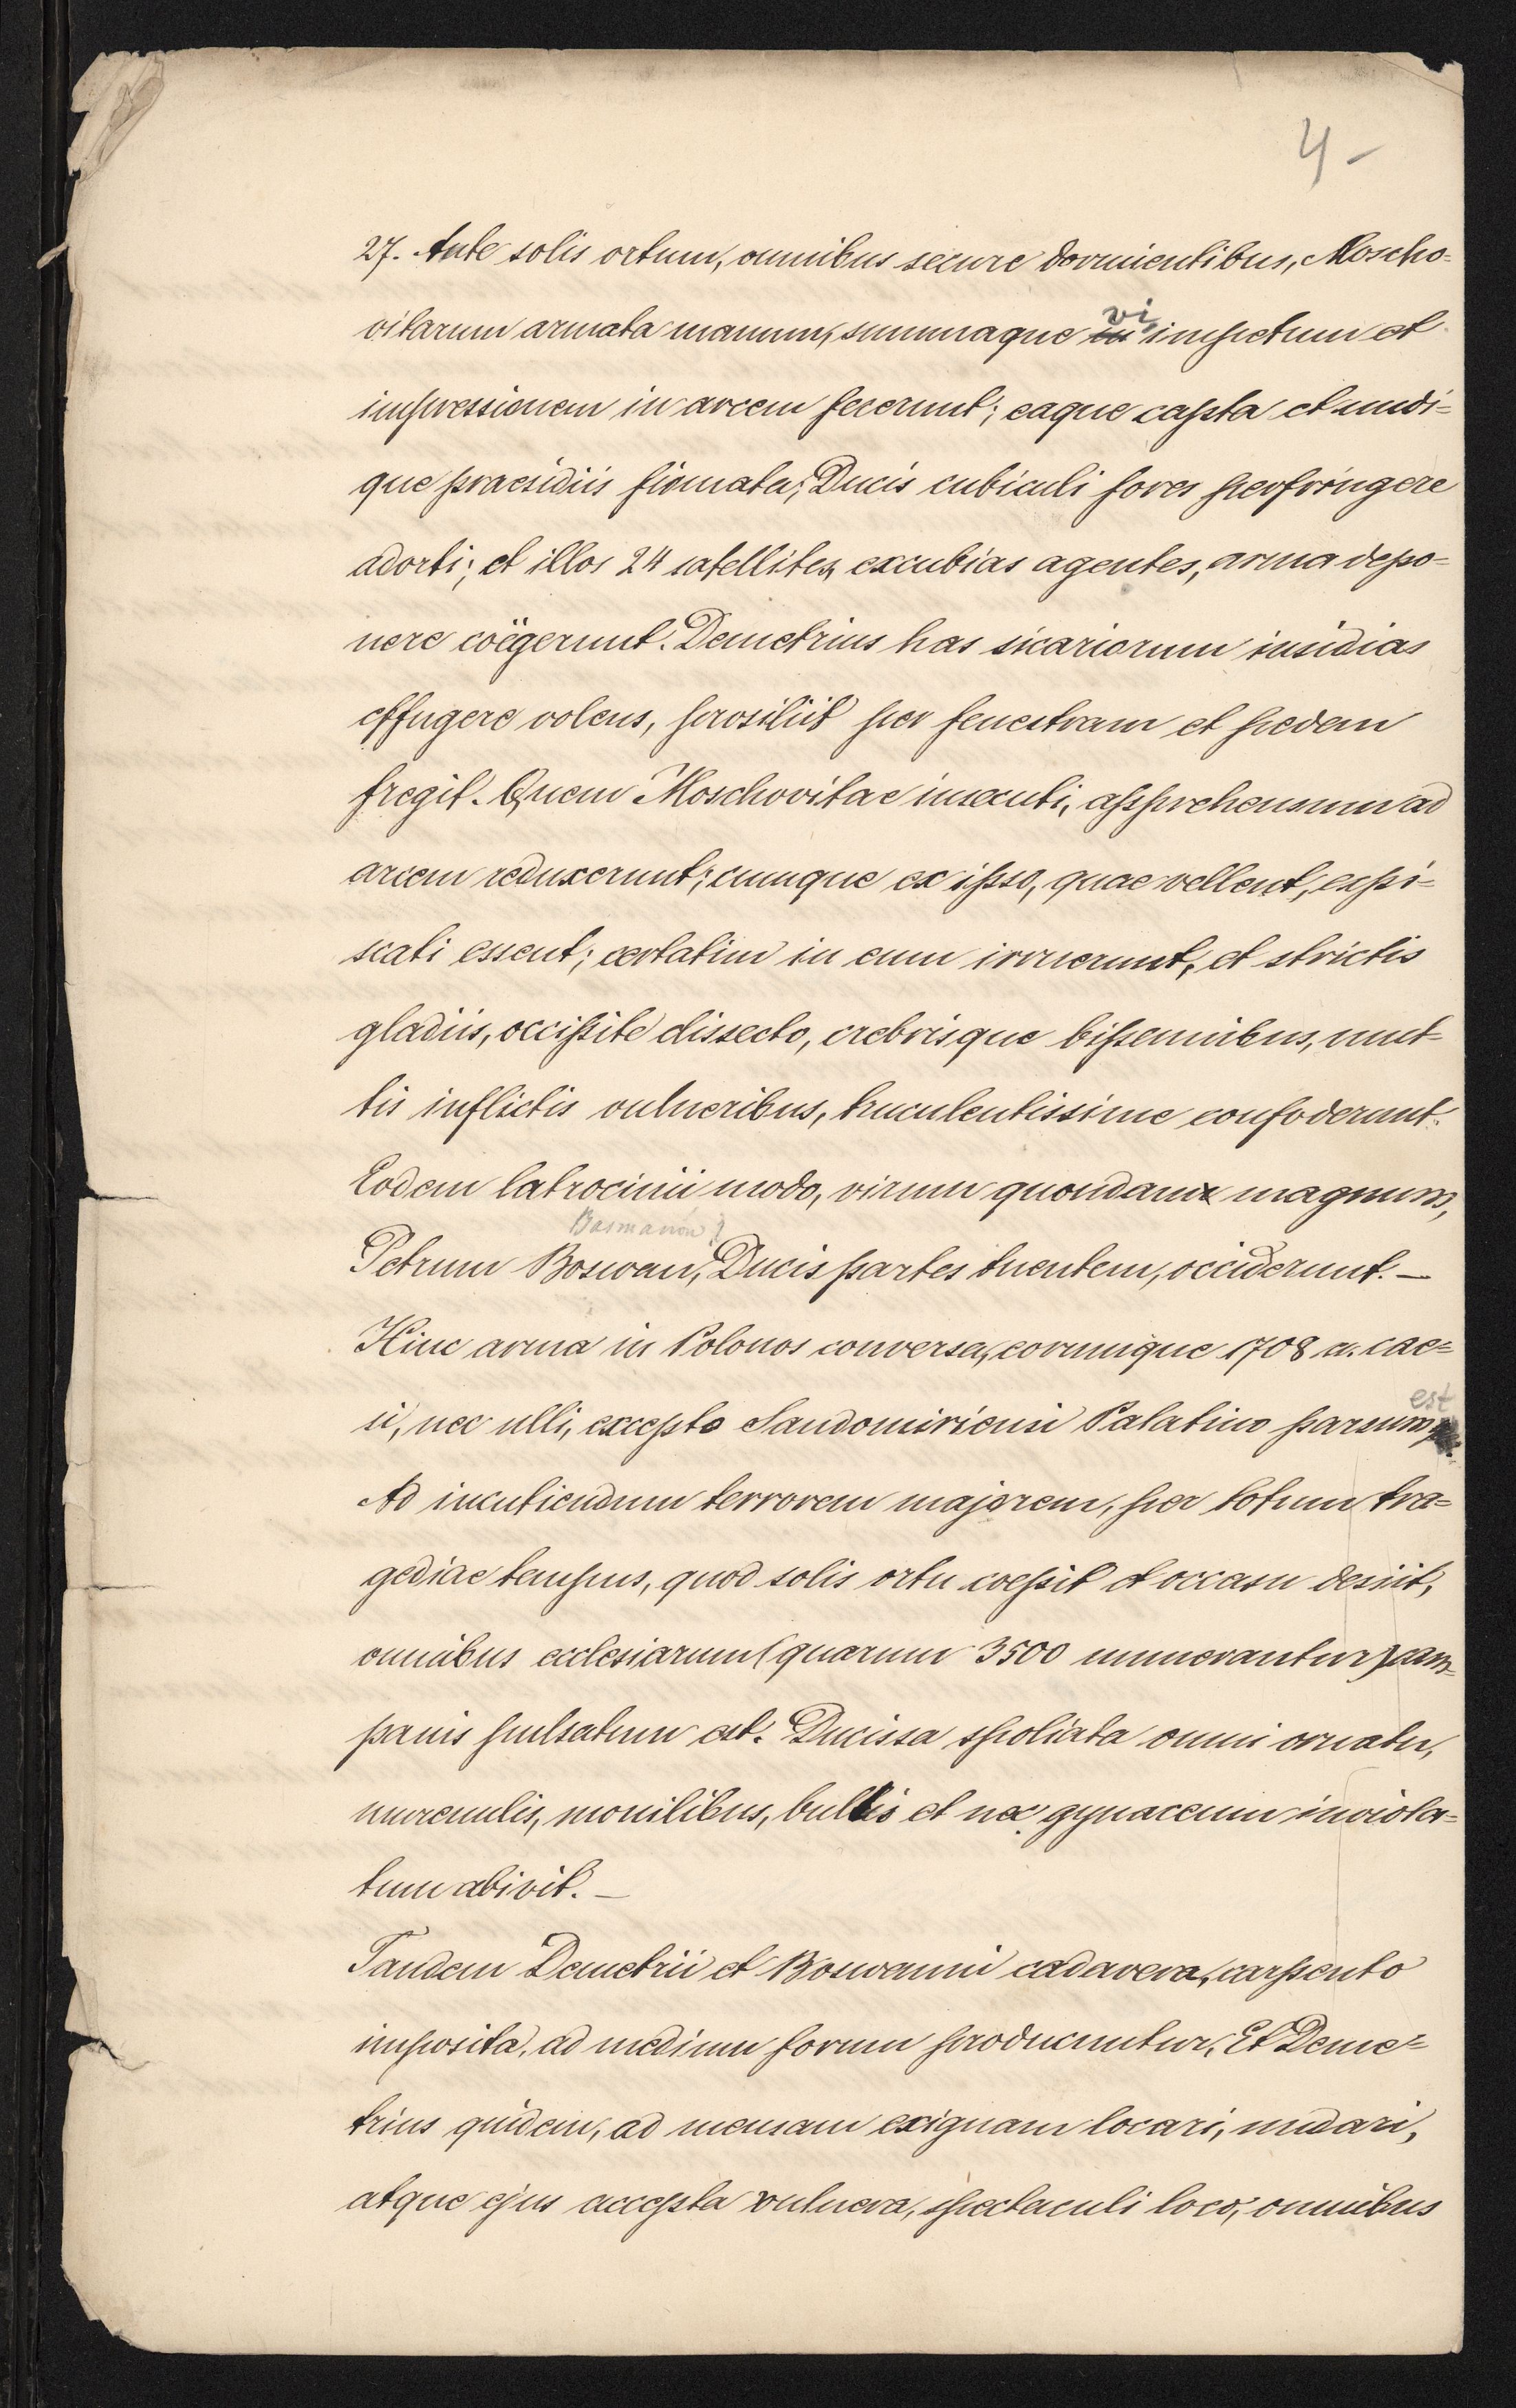 4-
27. Ante solis ortum, omnibus secure dormientibus, Moscho=
vitarum armata manum, summaque vi impetum et
impressionem in arcem fecerunt; eaque capta et undi=
que praesidiis firmata; Ducis cubiculi fores perfringere
adorti; et illos 24 satellites, excubias agentes, arma depo=
nere coëgerunt. Demetrius has sicariorum insidias
effugere volens, prosiliit per fenestram et pedem
fregit. Quem Moschovitae insecuti, apprehensum ad
arcem reduxerunt; cumque ex ipso, quae vellent, expi=
scati essent; certatim in eum irruerunt, et strictis
gladiis, occipite dissecto, crebrisque bipennibus, mul=
tis inflictis vulneribus, truculentissime confoderunt.
Eodem latrocinii modo, virum quondam magnum,
Basmanow?
Petrum Boswan, Ducis partes tuentem, occiderunt. —
Hinc arma in Polonos conversa, eorumque 1708 a. cae=
si, nec ulli, excepto Sandomiriensi Palatino parsum est
Ad incutiendum terrorem majorem, per totum tra=
gediae tempus, quod solis ortu coepit et occasu desiit,
omnibus ecclesiarum (quarum 3500 numerantur) cam=
panis pulsatum est. Ducissa spoliata omni ornatu,
murenulis, monilibus, bullis et nec gynaceum inviola=
tum abivit. —
Tandem Demetrii et Boswanni cadavera, carpento
imposita, ad medium forum producuntur, Et Deme=
trius quidem, ad mensam exiguam locari, nudari,
atque ejus accepta vulnera, spectaculi loco, omnibus